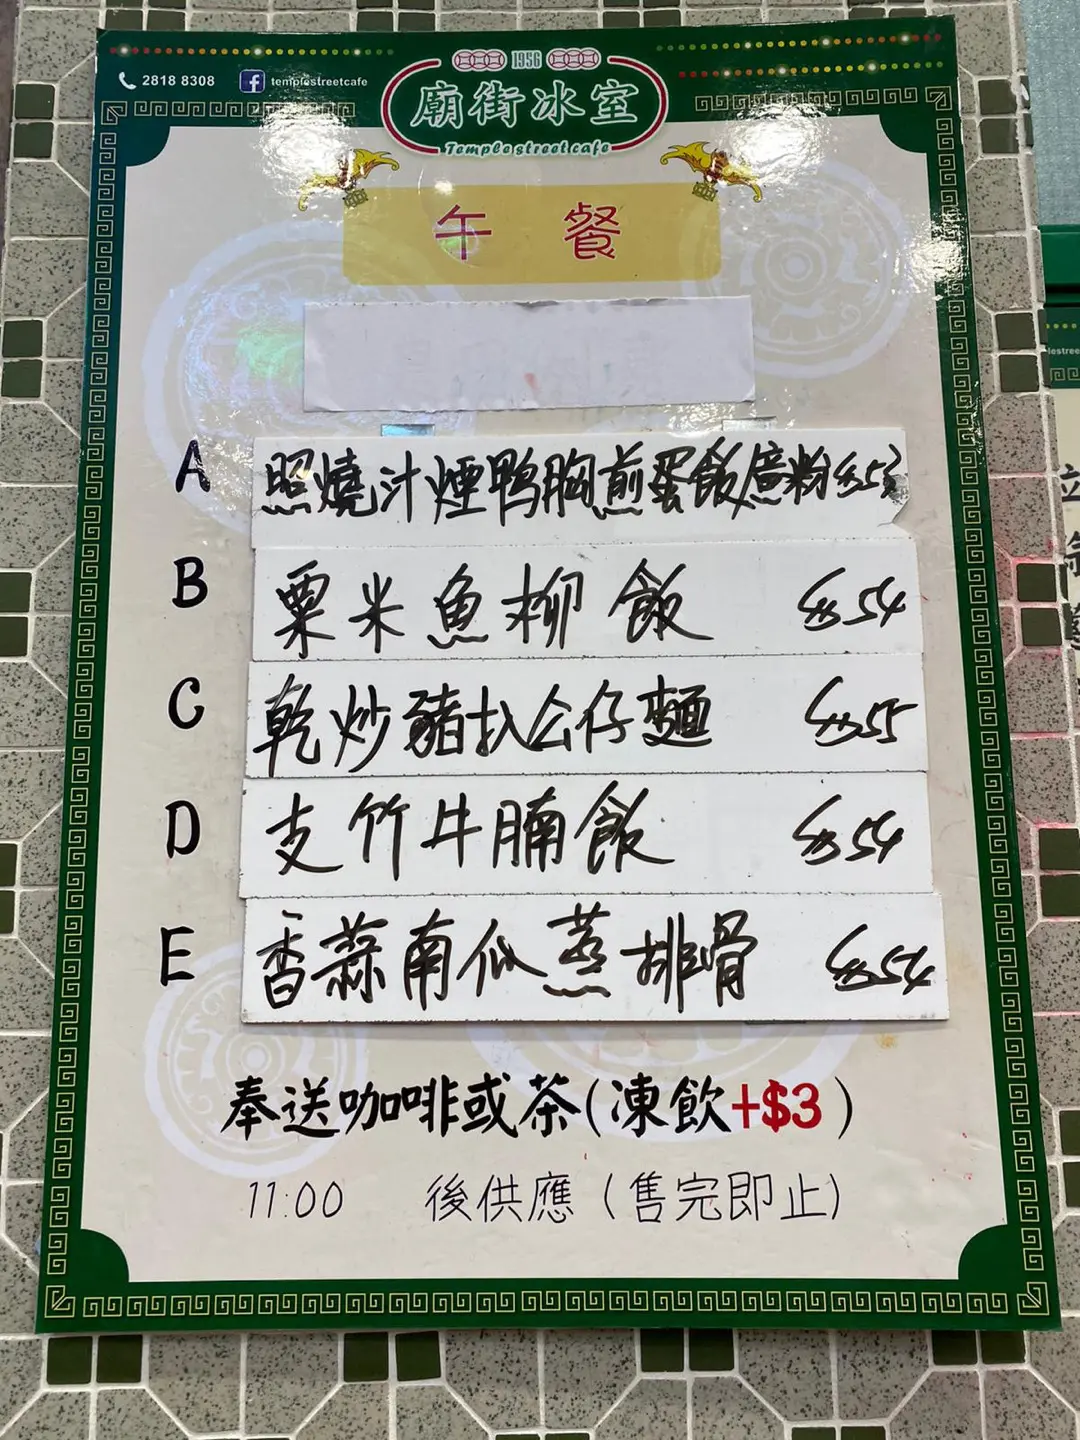 2818 8308 templestreetcafe
1956
廟街冰室
Temple street cafe
午餐
A 照燒汁煙鴨胸煎蛋飯/意粉 $53
B 粟米魚柳飯 $54
C 乾炒豬扒公仔麵 $55
D 支竹牛腩飯 $54
E 香蒜南瓜蒸排骨 $54
奉送咖啡或茶(凍飲+$3)
11:00 後供應(售完即止)